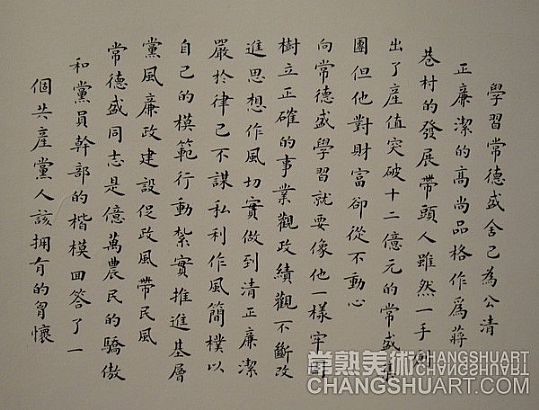 學習常德盛舍己為公清
正廉潔的高尚品格作爲蔣
巷村的發展帶頭人雖然一手創
出了產值突破十二億元的常盛集
團但他對財富卻從不動心
向常德盛學習就要像他一樣牢固
樹立正確的事業觀政績觀不斷改
進思想作風切實做到清正廉潔
嚴於律己不謀私利作風簡樸以
自己的模範行動紮實推進基層
黨風廉政建設促政風帶民風
常德盛同志是億萬農民的驕傲
和黨員幹部的楷模回答了一
個共產黨人該擁有的胸懷
常熟美術 CHANGSHUART
CHANGSHUART.COM